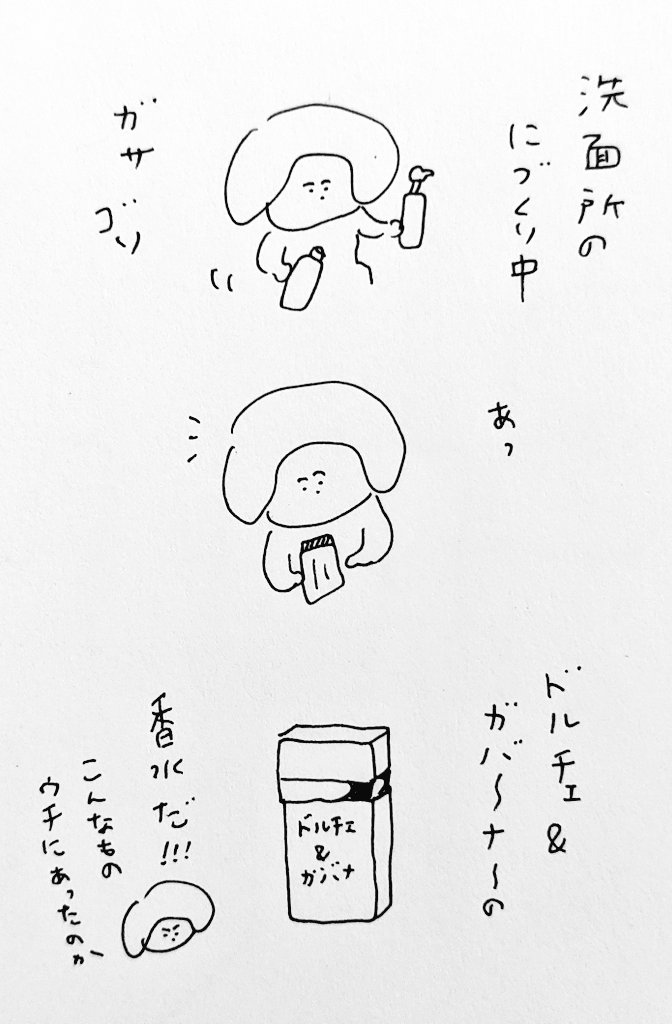 洗面所の
にづくり中
ガサ
ゴソ
あっ
ドルチェ&
ガバ〜ナ〜の
ドルチェ
&
ガバナ
香水だ!!!
こんなもの
ウチにあったのか